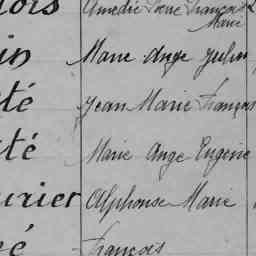 ois Amédée Pierre François
Marie
in Marie Ange Julien
té Jean Marie François
té Marie Ange Eugénie
urier Alphonse Marie
é François